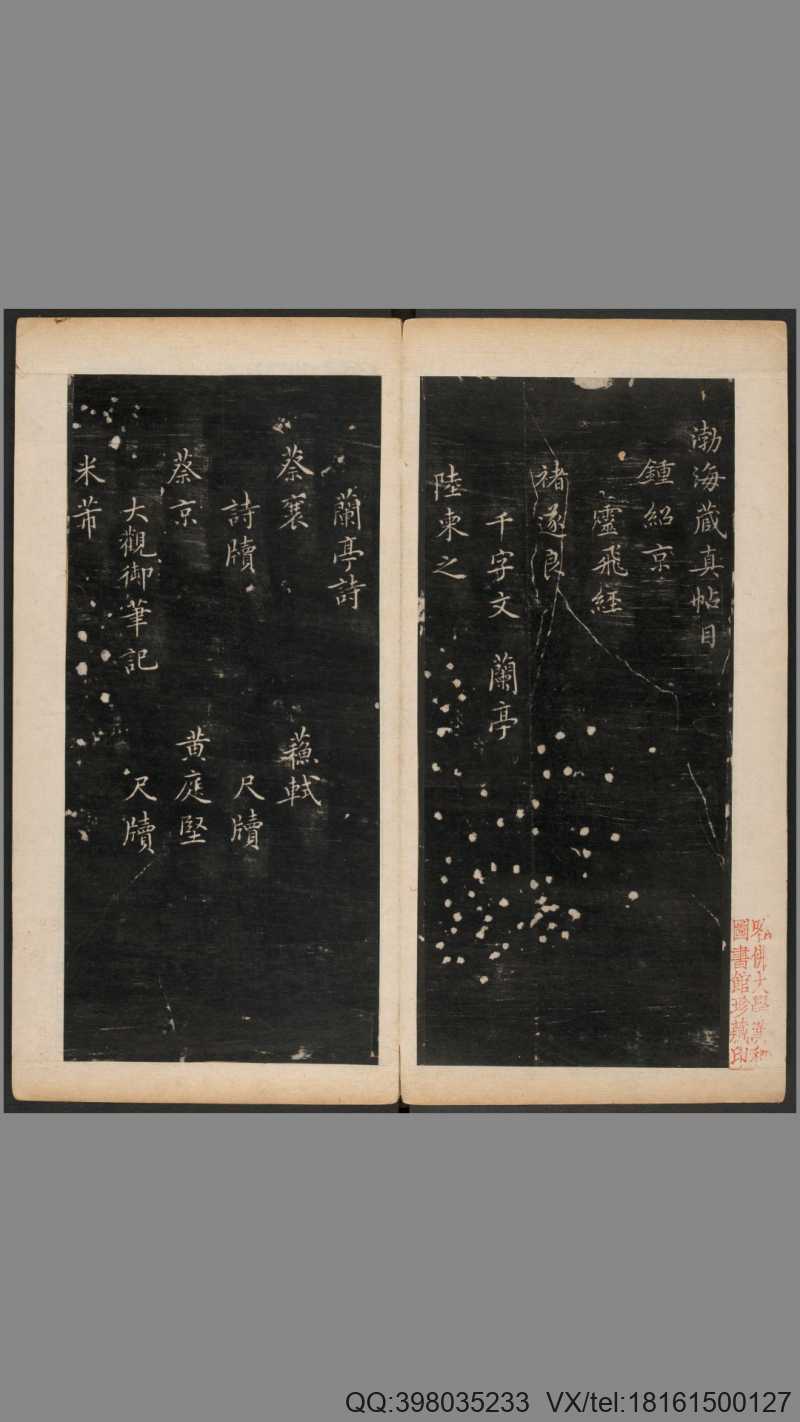 渤海蔵真帖目
鍾紹京
靈飛經
褚遂良
千字文　蘭亭
陸柬之
蘭亭詩
蔡襄　蘓軾
詩牘　尺牘
蔡京　黄庭堅
大觀御筆記　尺牘
米芾
哈佛大學漢和
圖書館珍藏印
QQ:398035233 VX/tel:18161500127